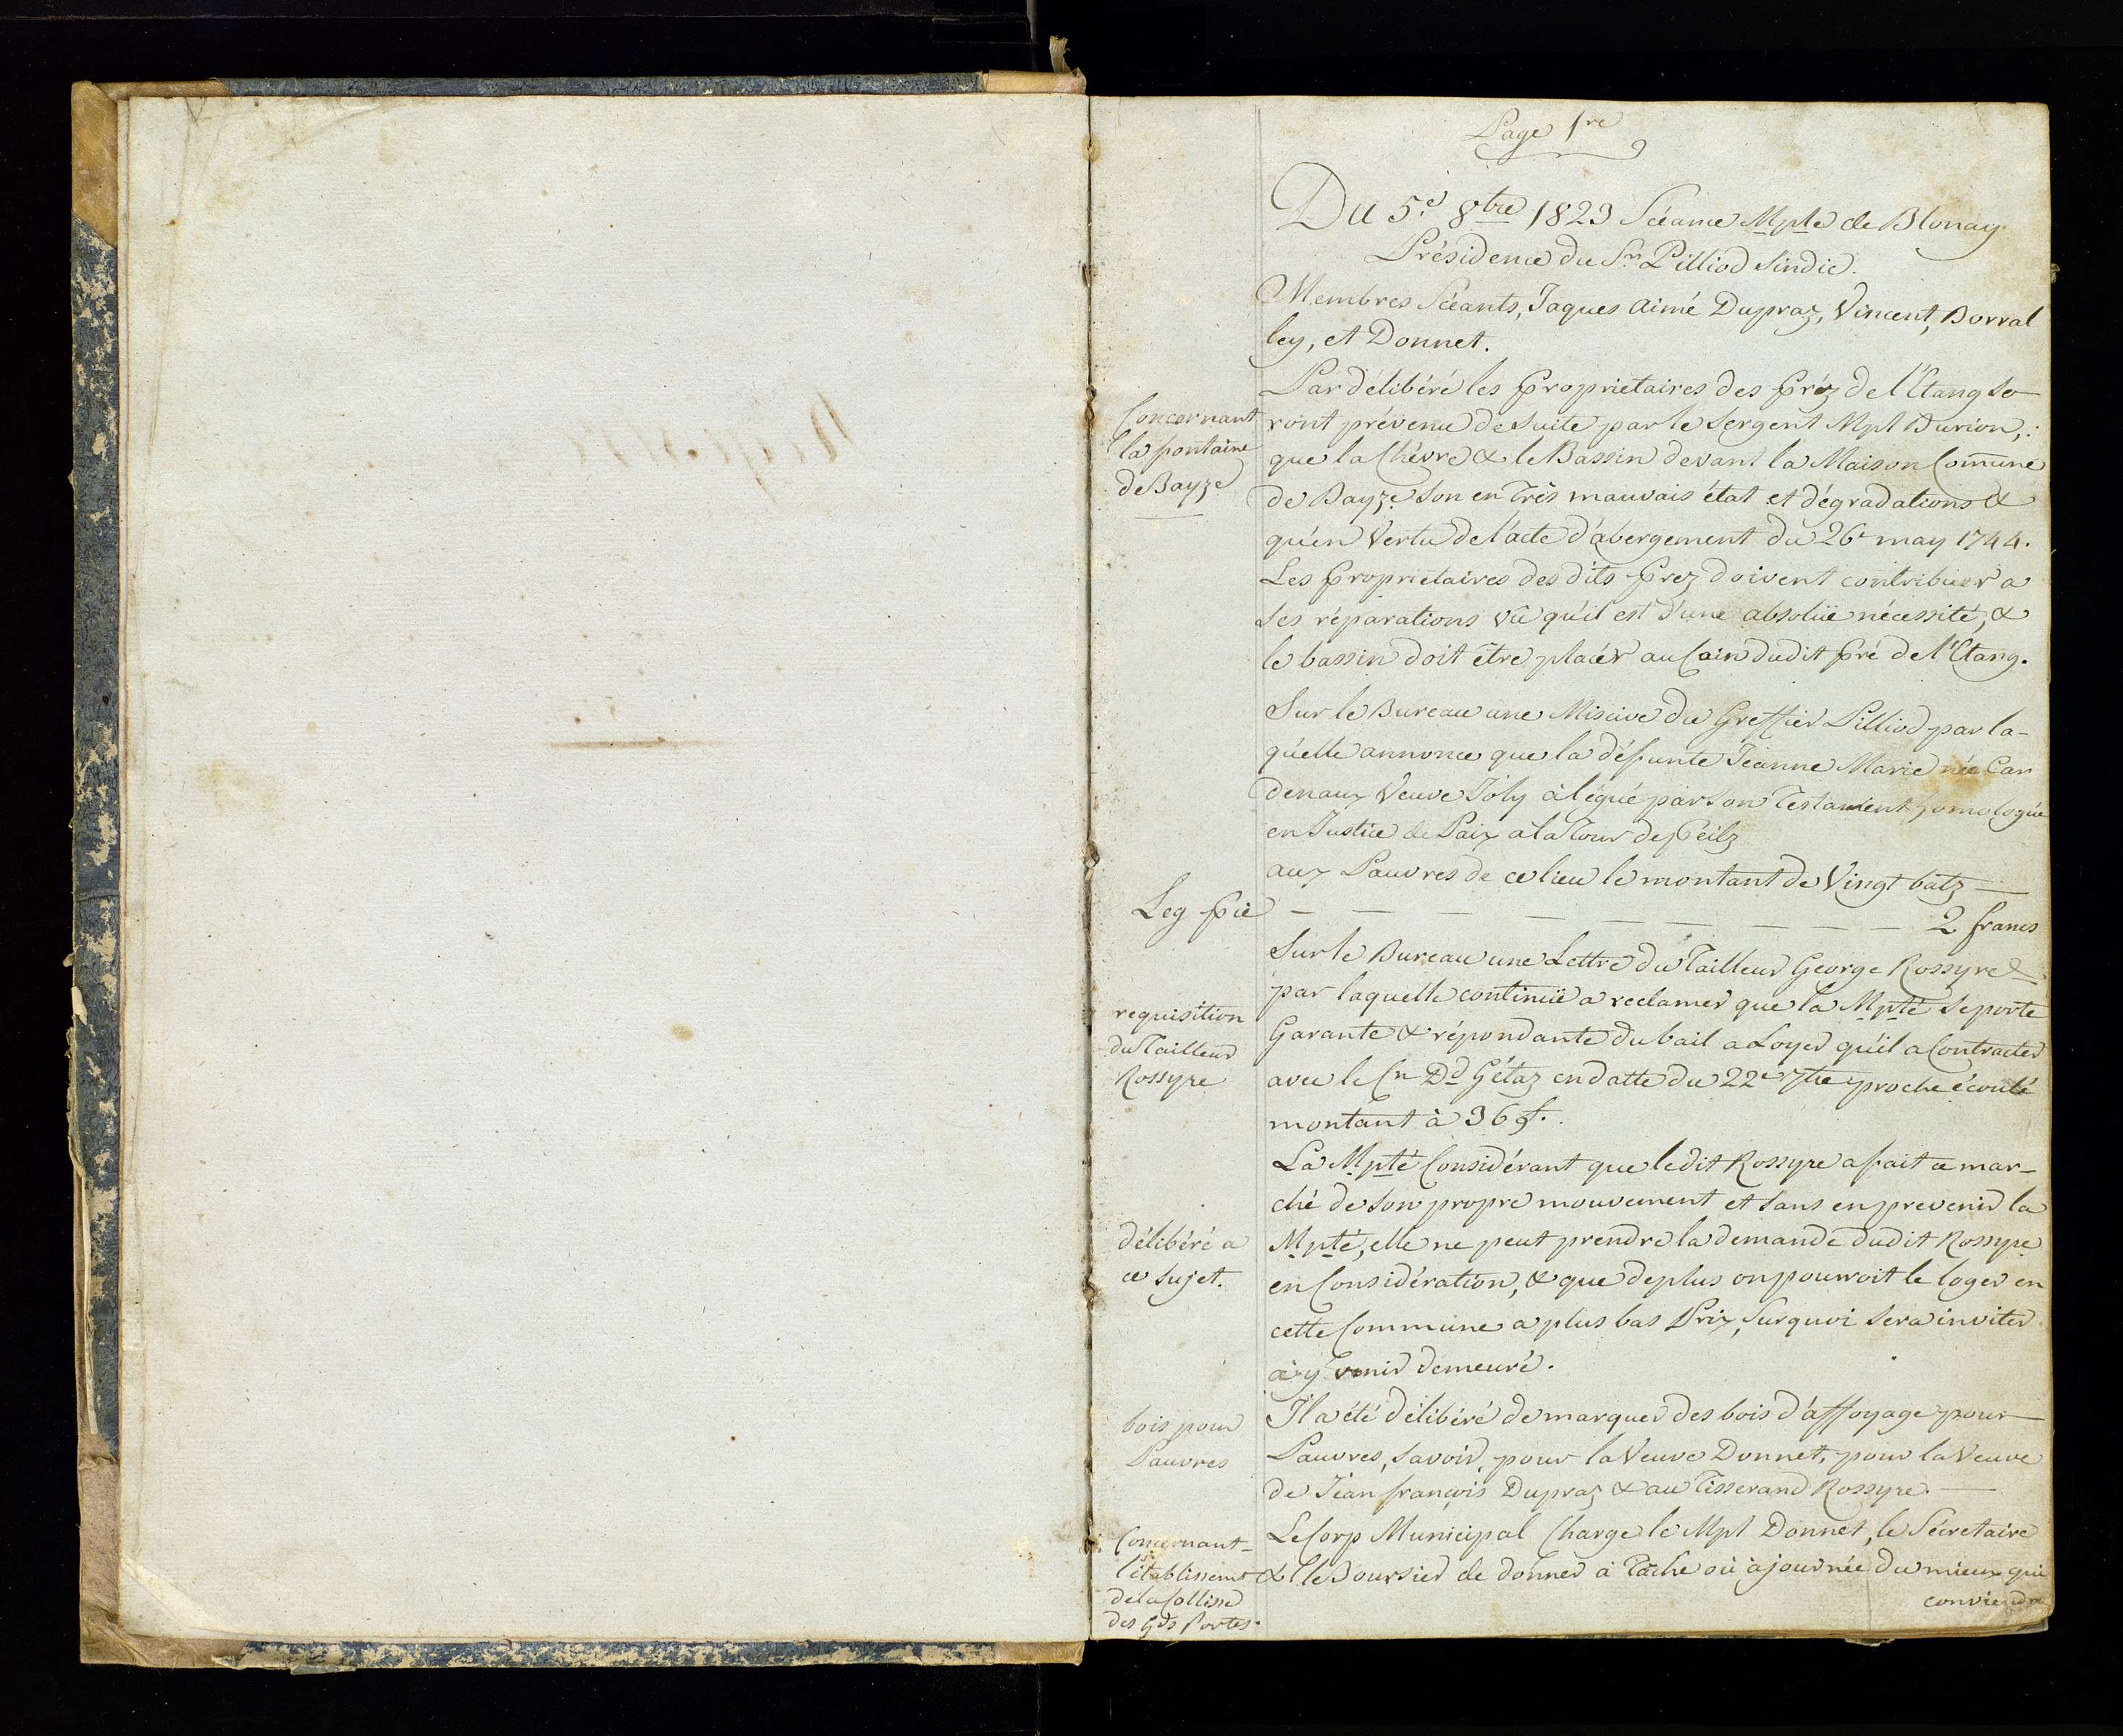 Page 1re
Du 5.e 8bre 1823 Scéance Mpte de Blonay
Présidence du Sr. Pilliod Sindic.
Membres Scéants, Jaques Aimé Dupraz, Vincent, Borral
ley, et Donnet.
Concernant
la fontaine
de Bayze
Par délibéré les Proprietaires des Préz de l'Etang se-
ront prévenu de suite par le Sergent Mpl Durion,
que la Chévre & le Bassin devant la Maison Commune
de Bayze son en Très mauvais état et dégradations &
qu'en Vertu de l'acte d'abergement du 26e may 1744.
Les Proprietaires des dits Prez doivent contribuer a
ses réparations vû qu'il est d'une absolüe nécessité, &
le bassin doit être placér au Coin dudit Pré de l'Etang.
Sur le Bureau une Miscive du Greffier Pilliod par la-
quelle annonce que la défunte Jeanne Marie née Car
denaux Veuve Joly à légué par son Testament homologué
en Justice de Paix a la Tour de Peilz
aux Pauvres de ce lieu le montant de Vingt batz —
Leg Pie
— — — — — — — — — 2 francs
requisition
du Tailleur
Rossyre
Sur le Bureau une Lettre du Tailleur George Rossyre
par laquelle continüe a reclamer que la Mpté se porte
Garante & répondante du bail a Loyer qu'il a Contracter
avec le Cn Dd Gétaz en datte du 22e 7bre proche écoulé
montant à 36 f.
délibéré a
ce sujet.
La Mpté Considérant que ledit Rossyre a fait ce mar-
ché de son propre mouvement et sans en prevenir la
Mpté, elle ne peut prendre la demande dudit Rossyre
en Considération, & que deplus on pourroit le loger en
cette Commune a plus bas Prix, Surquoi sera inviter
a y venir demeuré.
bois pour
Pauvres
Il a été délibéré de marquer des bois d'affoyage pour
Pauvres, savoir, pour la Veuve Donnet, pour la Veuve
de Jean françois Dupraz & au Tisserand Rossyre. —
Concernant
l'établissemt
de la Collisse
des Gds Portes.
Le Corp Municipal Charge le Mpl Donnet, le Sécretaire
& le Boursier de donner à Tâche où à journée du mieux qui
conviendra